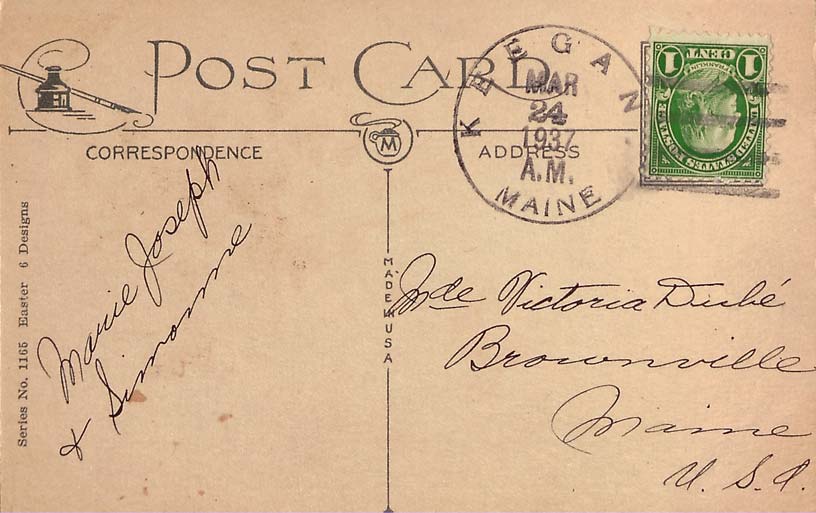 POST CARD
KEEGAN
MAR
24
1937
A.M.
MAINE
1 CENT 1
FRANKLIN
UNITED STATES POSTAGE
CORRESPONDENCE
M
ADDRESS
Series No. 1165 Easter 6 Designs
MADE IN USA
Marie Joseph
& Simonne
Mde Victoria Dubé
Brownville
Maine
U. S. A.